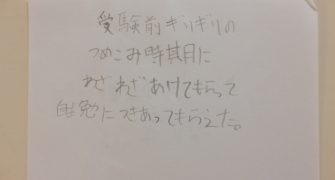 受験前ギリギリの
つめこみ時期に
わざわざあけてもらって
自勉につきあってもらえた。